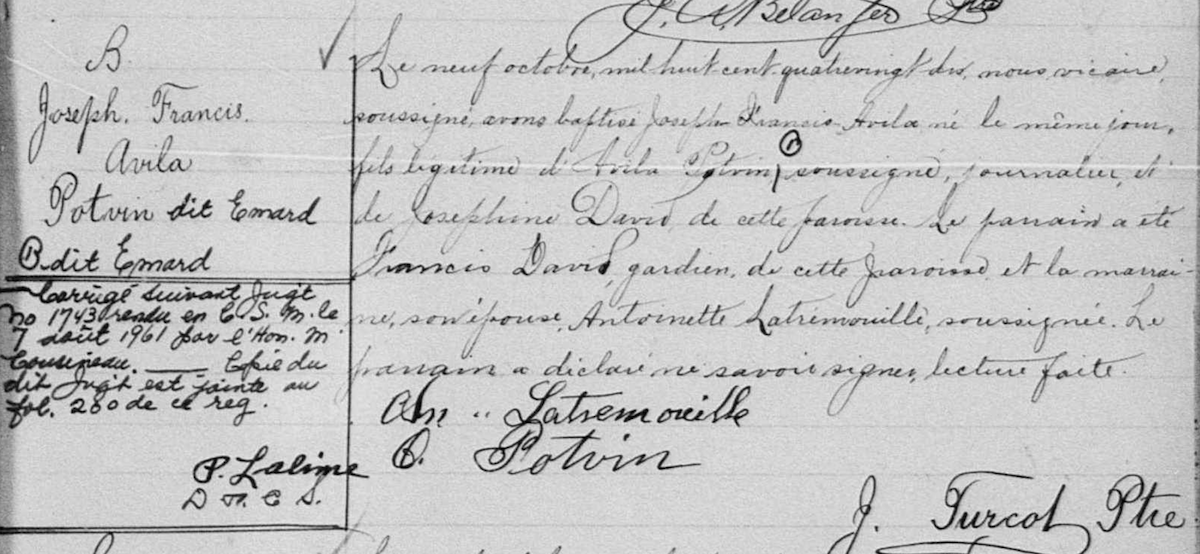 J. A. Belanger Ptre
B.
Joseph. Francis.
Avila
Potvin dit Emard
① dit Emard
Corrigé suivant Jugt
No 1743 rendu en C. S. M. le
7 août 1961 par l'Hon. M
Cousineau. —— Copie du
dit Jugt est jointe au
fol. 280 de ce reg.
P. Lalime
D P. C S.
Le neuf octobre, mil huit cent quatrevingt dix, nous, vicaire,
soussigné, avons baptisé Joseph Francis Avila né le même jour,
fils légitime d'Avila Potvin, ① soussigné, journalier, et
de Josephine David, de cette paroisse. Le parrain a été
Francis David, gardien, de cette paroisse et la marrai-
ne, son épouse, Antoinette Latrémouille, soussignée. Le
parrain a déclaré ne savoir signer, lecture faite.
An .. Latremouille
O. Potvin
J. Turcot Ptre